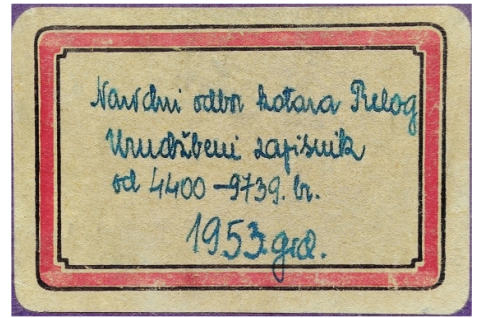 Narodni odbor kotara Prelog
Urudžbeni zapisnik
od 4400-9739. br.
1953. god.